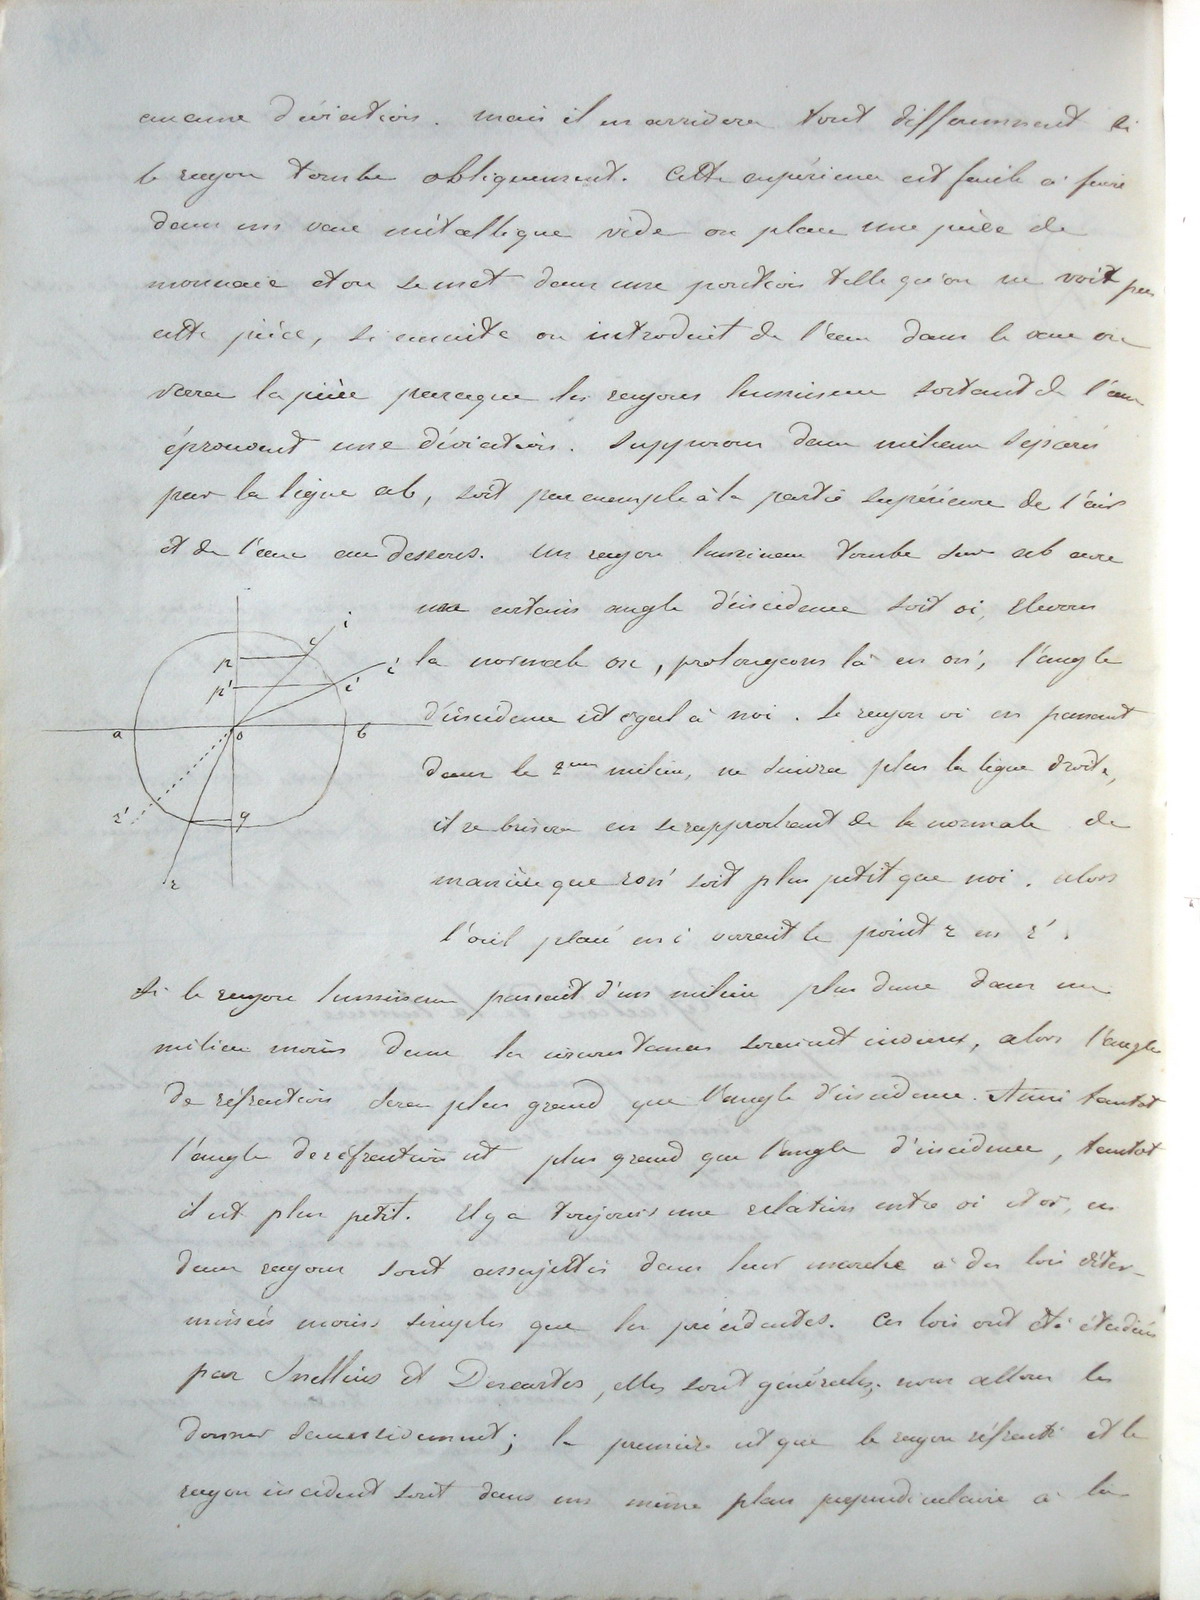 aucune déviation. Mais il en arrivera tout différemment si
le rayon tombe obliquement. Cette expérience est facile à faire
dans un vase métallique vide on place une pièce de
monnaie et on se met dans une position telle qu'on ne voit pas
cette pièce, si ensuite on introduit de l'eau dans le vase on
verra la pièce parceque les rayons lumineux sortant de l'eau
éprouvent une déviation. Supposons deux milieux séparés
par la ligne ab, soit par exemple à la partie supérieure de l'air
et de l'eau au dessous. Un rayon lumineux tombe sur ab avec
un certain angle d'incidence soit oi, élevons
la normale on, prolongeons là en on', l'angle
d'incidence est égal à noi. Le rayon oi en passant
dans le 2eme milieu, ne suivra plus la ligne droite,
il se brisera en se rapprochant de la normale de
manière que ron' soit plus petit que noi. alors
l'œil placé en i verrait le point r en r'.
p
p'
i
i
i'
a
o
b
r'
q
r
Si le rayon lumineux passait d'un milieu plus dense dans un
milieu moins dense les circonstances seraient inverses, alors l'angle
de réfraction sera plus grand que l'angle d'incidence. Ainsi tantot
l'angle de réfraction est plus grand que l'angle d'incidence, tantot
il est plus petit. Il y a toujours une relation entre oi et or, ces
deux rayons sont assujettis dans leur marche à des lois déter-
minées moins simples que les précédentes. Ces lois ont été étudiées
par Snellius et Descartes, elles sont générales. nous allons les
donner successivement; la première est que le rayon réfracté et le
rayon incident sont dans un même plan perpendiculaire à la